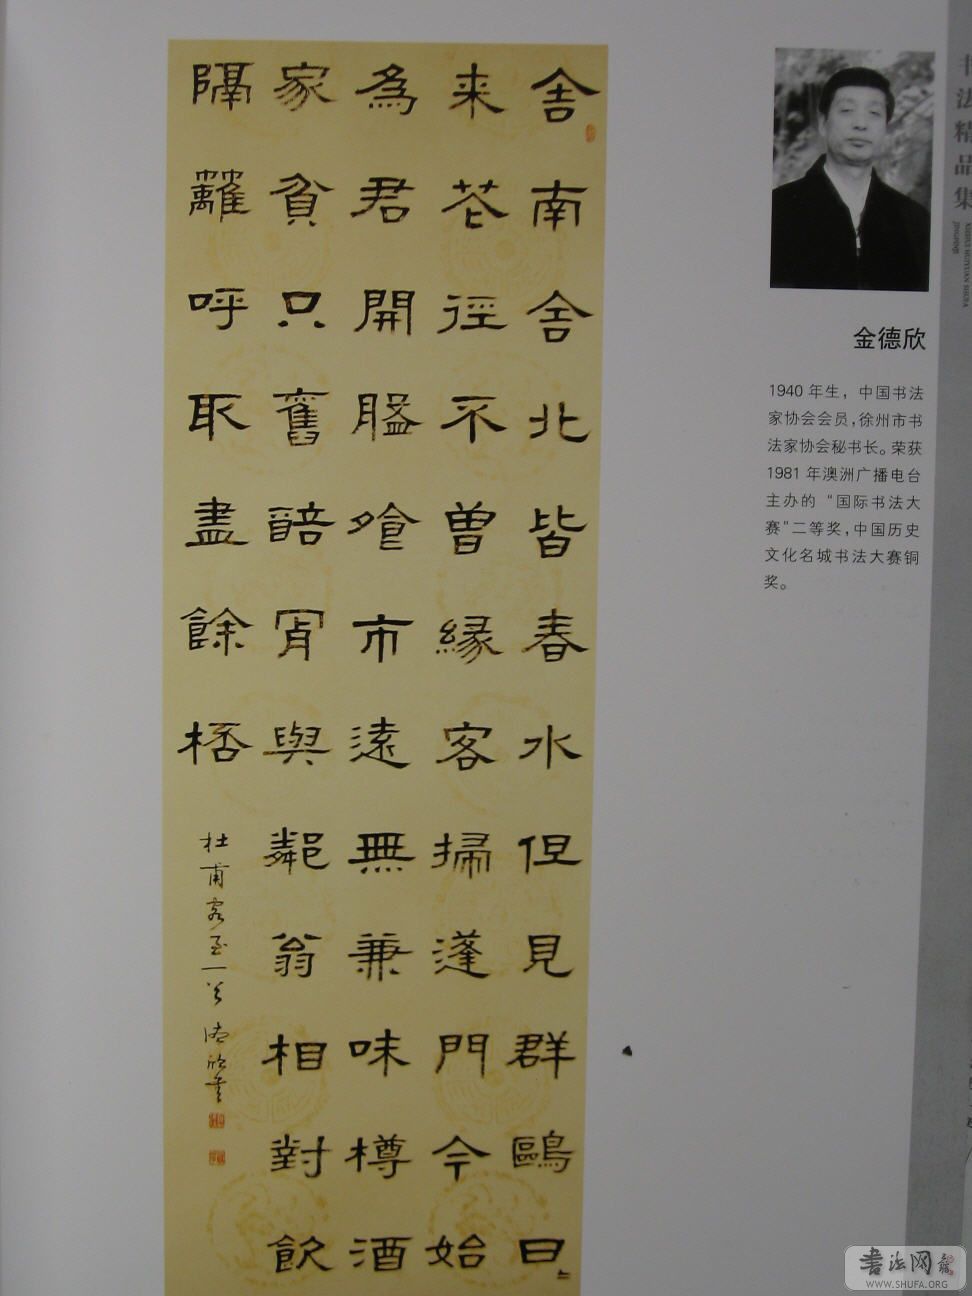 舍南舍北皆春水但見群鷗日〻
来花徑不曾緣客掃蓬門今始
為君開盤飱市遠無兼味樽酒
家貧只舊醅肯與鄰翁相對飲
隔籬呼取盡餘桮
杜甫客至一首 德欣書
金德欣
1940 年生，中国书法
家协会会员，徐州市书
法家协会秘书长。荣获
1981 年澳洲广播电台
主办的“国际书法大
赛”二等奖，中国历史
文化名城书法大赛铜
奖。
书法精品集
书法网
WWW.SHUFA.ORG